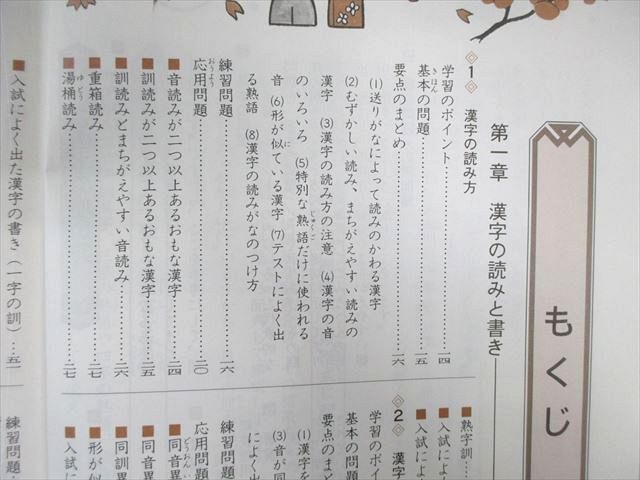 もくじ
第一章 漢字の読みと書き
1 漢字の読み方
学習のポイント……一四
基本の問題……一五
要点のまとめ……一六
(1)送りがなによって読みのかわる漢字
(2)むずかしい読み、まちがえやすい読みの
漢字 (3)漢字の読み方の注意 (4)漢字の音
のいろいろ (5)特別な熟語だけに使われる
音 (6)形が似ている漢字 (7)テストによく出
る熟語 (8)漢字の読みがなのつけ方
練習問題……一六
応用問題……二〇
■音読みが二つ以上あるおもな漢字……二四
■訓読みが二つ以上あるおもな漢字……二五
■訓読みとまちがえやすい音読み……二六
■重箱読み……二七
■湯桶読み……二七
■熟字訓……
■入試によ
■入試によ
2 漢字
学習のポイ
基本の問題
要点のまと
(1)漢字を
(3)音が同
によく出
練習問題
応用問題
■同音異
■同音異
■同訓異
■形が似
■入試に
■入試によく出た漢字の書き(一字の訓)…五一
練習問題